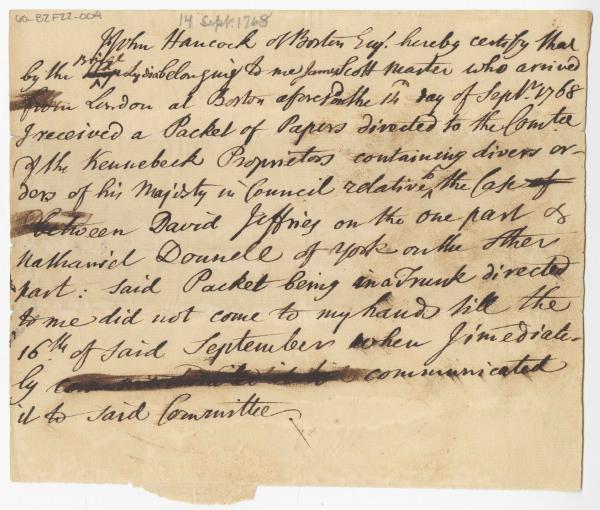 60-BZF22-004
14 Sept. 1768
I John Hancock of Boston Esqr. hereby certify that
by the Brig Lydia belonging to me James Scott master who arrived
from London at Boston on the 14 day of Septr. 1768
I received a Packet of Papers directed to the Comtee
of the Kennebeck Proprietors containing divers or-
ders of his Majesty in Council relative to the Case of
between David Jeffries on the one part &
Nathaniel Donnell of York on the other
part: said Packet being in a Trunk directed
to me did not come to my hands till the
16th of said September when I imediate-
ly communicated
it to said Committee.